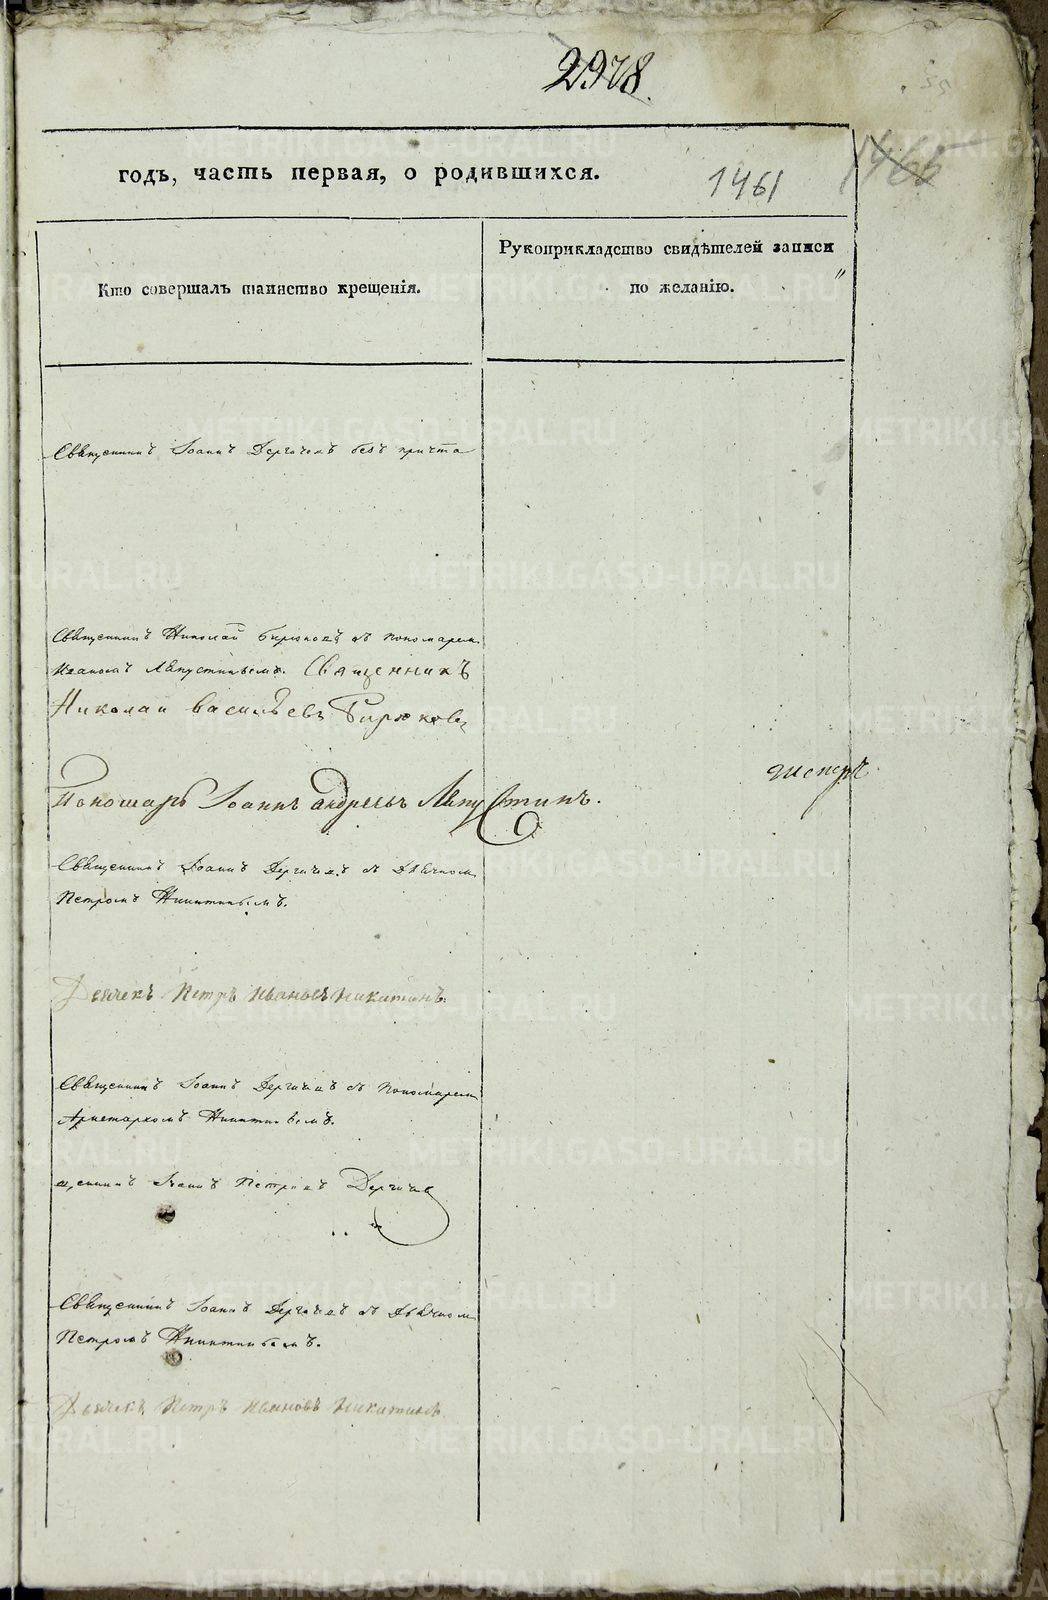 2978.
годъ, часть первая, о родившихся.
1461
1465
Кто совершалъ таинство крещенія.
Рукоприкладство свидѣтелей записи
по желанію.
Священникъ Іоаннъ Дергачевъ безъ причта
Священникъ Николай Бирюковъ съ пономаремъ
Иваномъ Лѣпустинымъ. Священникъ
Николай Васильевъ Бирюковъ
Пономарь Іоаннъ Андреевъ Лѣпустинъ.
Священникъ Іоаннъ Дергачевъ съ Дьячкомъ
Петромъ Никитинымъ.
Дьячекъ Петръ Ивановъ Никитинъ.
Священникъ Іоаннъ Дергачевъ съ Пономаремъ
Аристархомъ Никитинымъ.
щенникъ Іоаннъ Петровъ Дергачев
Священникъ Іоаннъ Дергачевъ съ Дьячкомъ
Петромъ Никитинымъ.
Дьячекъ Петръ Ивановъ Никитинъ
METRIKI.GASO-URAL.RU